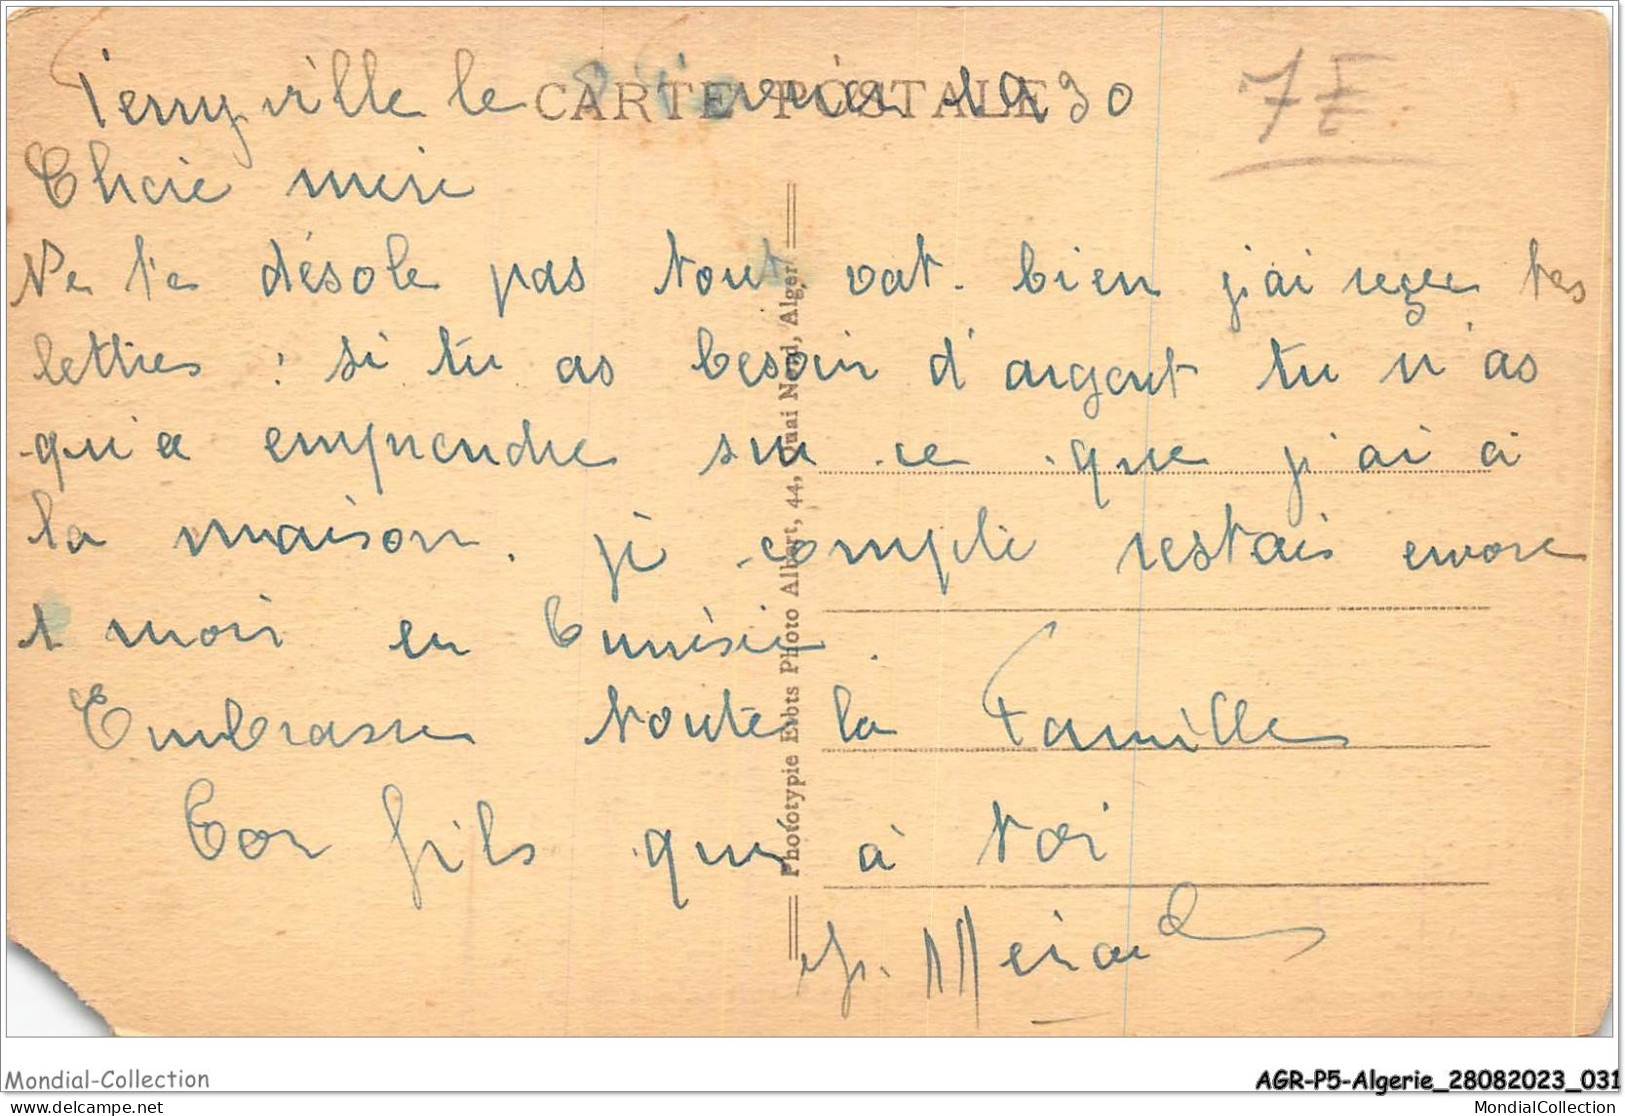 Ferryville le 1930
CARTE POSTALE
7E
Chere mere
Ne te désole pas tout vat. bien j'ai reçee tes
lettres : si tu as besoin d'argent tu n'as
qu'a emprendre sur ce que j'ai a
la maison. je compte restais encore
1 mois en Tunisie.
Embrasse toute la Famille
Ton fils qui à toi
Merad
Phototypie Etabts Photo Albert, 44, Quai Nord, Alger
Mondial-Collection
AGR-P5-Algerie_28082023_031
delcampe.net
MondialCollection